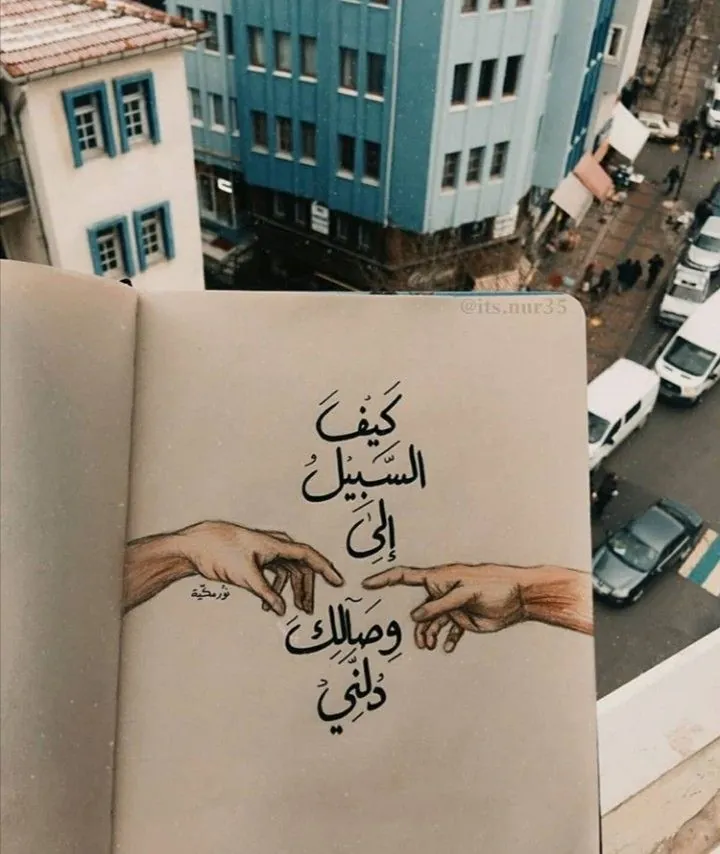 @its.nur35
كَيْفَ
السَّبِيْلُ
إِلىٰ
وِصَآلِكَ
دُلَنِّيْ
نور مكيّة